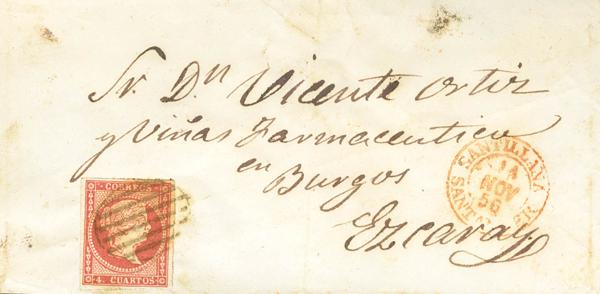 Sr. Dn Vicente Ortiz
y Viñas Farmaceutico
en
Burgos
Ezcaray
CORREOS
4. CUARTOS
SANTILLANA
14
NOV
56
SANTANDER